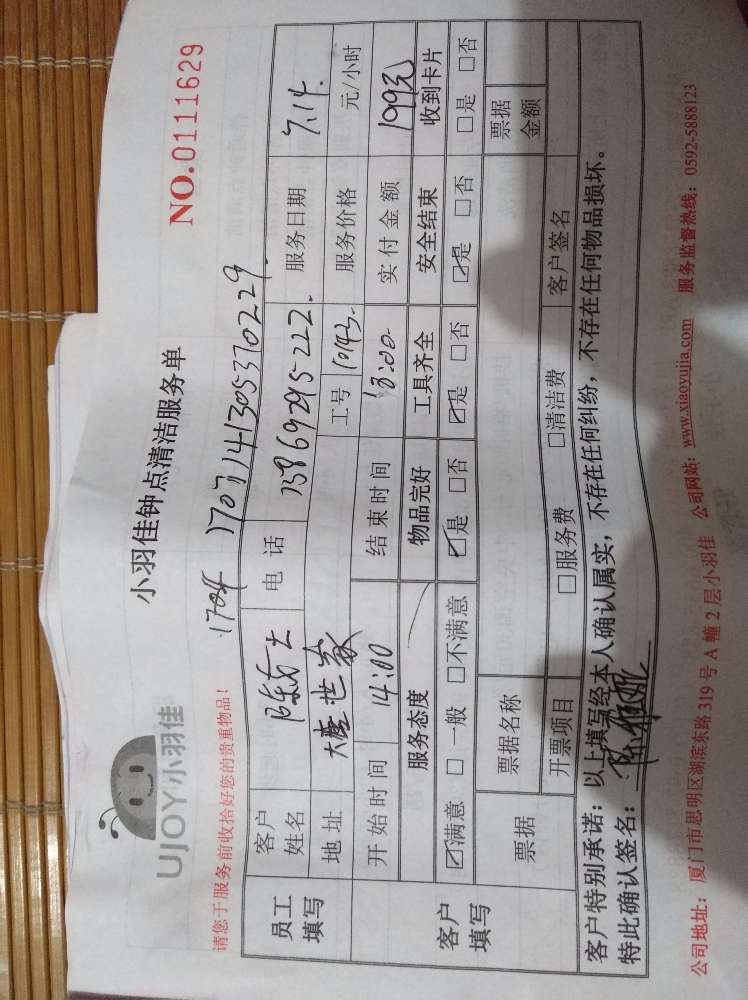 UJOY小羽佳
小羽佳钟点清洁服务单
NO.0111629
请您于服务前收拾好您的贵重物品！
1707141305370229
员工填写
客户姓名
陈女士
电话
服务日期
7.14.
地址
大唐世家
工号
服务价格
元/小时
开始时间
14:00
结束时间
18:00
实付金额
199元
客户填写
服务态度
物品完好
工具齐全
安全结束
收到卡片
☑满意 □一般 □不满意
☑是 □否
☑是 □否
☑是 □否
□是 □否
票据
票据名称
票据金额
开票项目
□服务费 □清洁费
客户签名
客户特别承诺：以上填写经本人确认属实，不存在任何纠纷，不存在任何物品损坏。
特此确认签名：
公司地址：厦门市思明区湖滨东路319号A幢2层小羽佳 公司网站：www.xiaoyujia.com 服务监督热线：0592-5888123